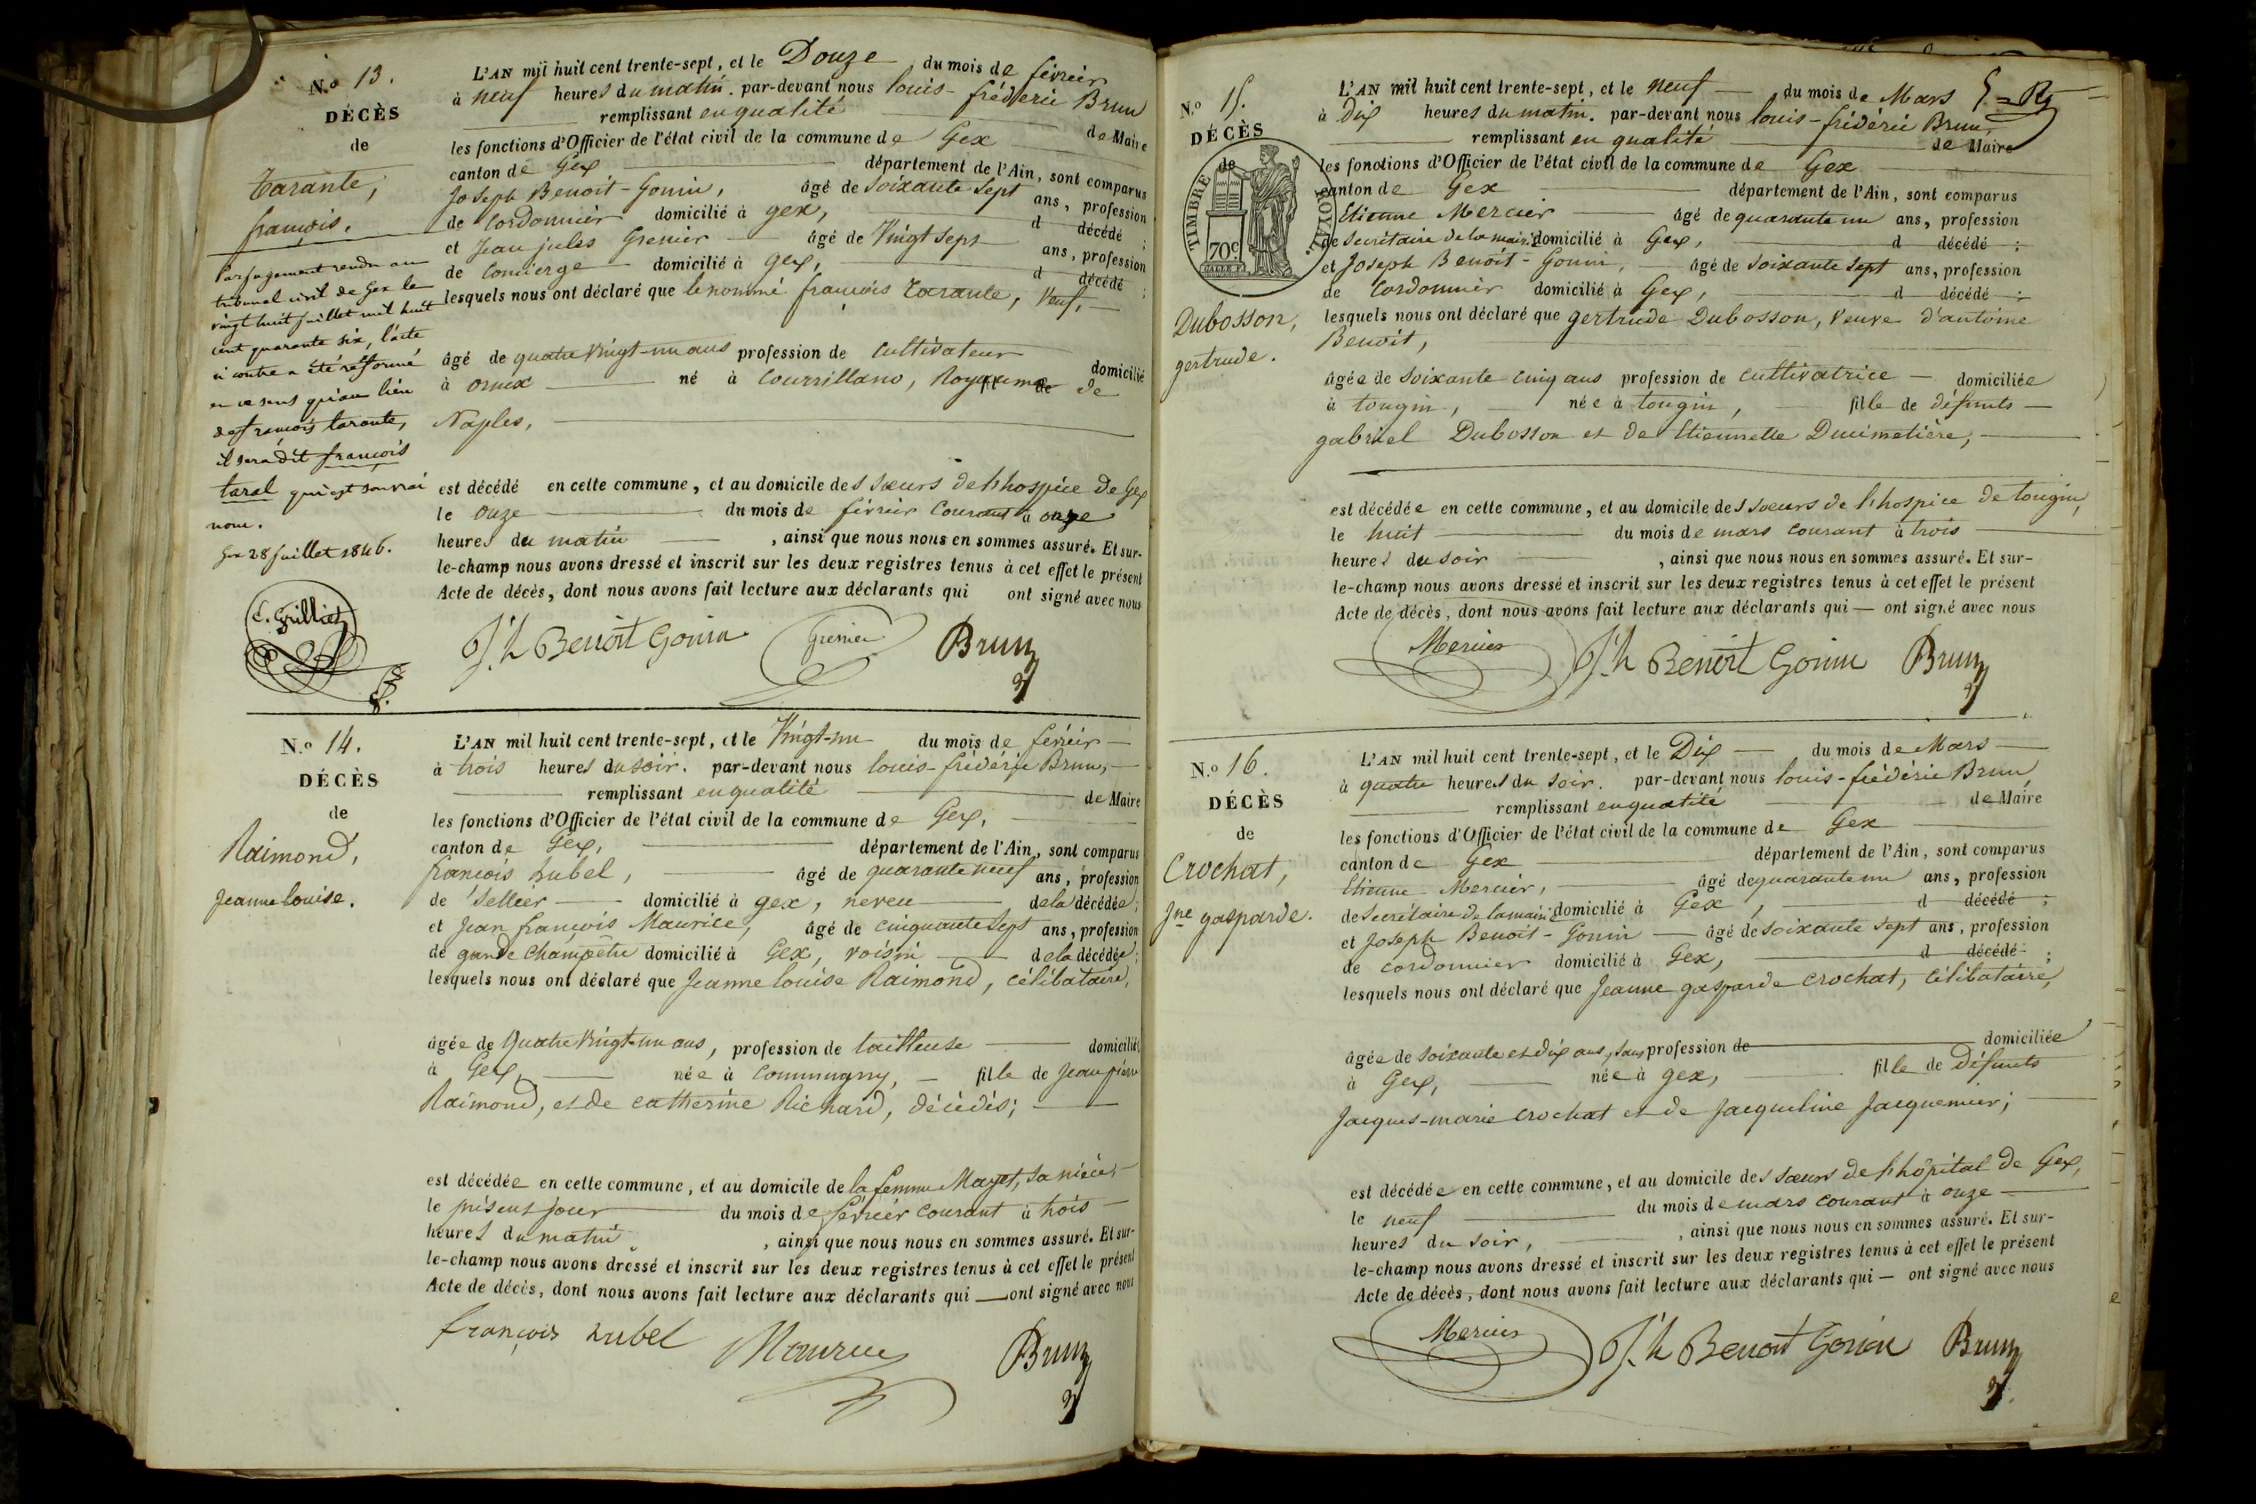 N.o 13.
DÉCÈS
de
Tarante,
françois.
Par jugement rendu au
tribunal civil de Gex le
vingt huit juillet mil huit
cent quarante six, l'acte
ci contre a été réformé
en ce sens qu'au lieu
de françois tarante,
il sera dit françois
taral qui est son vrai
nom.
Gex 28 juillet 1846.
L'AN mil huit cent trente-sept, et le Douze du mois de février
à neuf heures du matin. par-devant nous louis-fréderic Brun
remplissant en qualité de Maire
les fonctions d'Officier de l'état civil de la commune de Gex
canton de Gex département de l'Ain, sont comparus
Joseph Benoit-Gonin, âgé de soixante sept ans, profession
de Cordonnier domicilié à gex, d décédé ;
et Jean jules Grenier âgé de Vingt sept ans, profession
de Concierge domicilié à gex, d décédé ;
lesquels nous ont déclaré que le nommé françois tarante, Veuf,
âgé de quatre vingt-un ans profession de cultivateur domicilié
à ornex né à Courrillano, Royaume de
Naples,
est décédé en cette commune, et au domicile des sœurs de l'hospice de Gex
le onze du mois de février Courant à onze
heures du matin , ainsi que nous nous en sommes assuré. Et sur-
le-champ nous avons dressé et inscrit sur les deux registres tenus à cet effet le présent
Acte de décès, dont nous avons fait lecture aux déclarants qui ont signé avec nous
J.h Benoit Gonin Grenier Brun
N.o 14.
DÉCÈS
de
Raimond,
Jeanne louise.
L'AN mil huit cent trente-sept, et le Vingt-un du mois de février
à trois heures du soir. par-devant nous louis-frédéric Brun,
remplissant en qualité de Maire
les fonctions d'Officier de l'état civil de la commune de Gex,
canton de Gex, département de l'Ain, sont comparus
françois hubel, âgé de quarante neuf ans, profession
de Sellier domicilié à gex, neveu de la décédée;
et Jean françois Maurice, âgé de cinquante sept ans, profession
de garde champêtre domicilié à Gex, voisin de la décédée;
lesquels nous ont déclaré que Jeanne louise Raimond, célibataire,
âgée de Quatre Vingt-un ans, profession de tailleuse domicilié
à Gex, née à Commugny, fille de Jean pierre
Raimond, et de catherine Richard, décédés;
est décédée en cette commune, et au domicile de la femme Mayet, sa nièce,
le présent jour du mois de février courant à trois
heures du matin , ainsi que nous nous en sommes assuré. Et sur-
le-champ nous avons dressé et inscrit sur les deux registres tenus à cet effet le présent
Acte de décès, dont nous avons fait lecture aux déclarants qui ont signé avec nous
françois hubel Maurice Brun
N.o 15.
DÉCÈS
de
TIMBRE ROYAL.
70c
Dubosson,
gertrude.
L'AN mil huit cent trente-sept, et le neuf du mois de Mars
à Dix heures du matin. par-devant nous louis-frédéric Brun,
remplissant en qualité de Maire
les fonctions d'Officier de l'état civil de la commune de Gex
canton de Gex département de l'Ain, sont comparus
Etienne Mercier âgé de quarante un ans, profession
de Secrétaire de la mairie domicilié à Gex, d décédé ;
et Joseph Benoit-Gonin, âgé de soixante sept ans, profession
de Cordonnier domicilié à Gex, d décédé ;
lesquels nous ont déclaré que gertrude Dubosson, Veuve d'antoine
Benoit,
âgée de Soixante cinq ans profession de cultivatrice domiciliée
à tougin, née à tougin, fille de défunts
gabriel Dubosson et de Etiennette Ducimetière,
est décédée en cette commune, et au domicile des sœurs de l'hospice de tougin,
le huit du mois de mars courant à trois
heures du soir , ainsi que nous nous en sommes assuré. Et sur-
le-champ nous avons dressé et inscrit sur les deux registres tenus à cet effet le présent
Acte de décès, dont nous avons fait lecture aux déclarants qui ont signé avec nous
Mercier J.h Benoit Gonin Brun
N.o 16.
DÉCÈS
de
Crochat,
Jne gasparde.
L'AN mil huit cent trente-sept, et le Dix du mois de Mars
à quatre heures du soir. par-devant nous louis-frédéric Brun,
remplissant en qualité de Maire
les fonctions d'Officier de l'état civil de la commune de Gex
canton de Gex département de l'Ain, sont comparus
Etienne Mercier, âgé de quarante un ans, profession
de Secrétaire de la mairie domicilié à Gex, d décédé ;
et Joseph Benoit-Gonin âgé de soixante sept ans, profession
de cordonnier domicilié à Gex, d décédé ;
lesquels nous ont déclaré que Jeanne gasparde crochat, célibataire,
âgée de soixante et dix ans, sans profession de domiciliée
à Gex, née à gex, fille de défunts
Jacques-marie crochat et de Jacqueline Jacquemier;
est décédée en cette commune, et au domicile des sœurs de l'hôpital de Gex,
le neuf du mois de mars courant à onze
heures du soir, , ainsi que nous nous en sommes assuré. Et sur-
le-champ nous avons dressé et inscrit sur les deux registres tenus à cet effet le présent
Acte de décès, dont nous avons fait lecture aux déclarants qui ont signé avec nous
Mercier J.h Benoit Gonin Brun